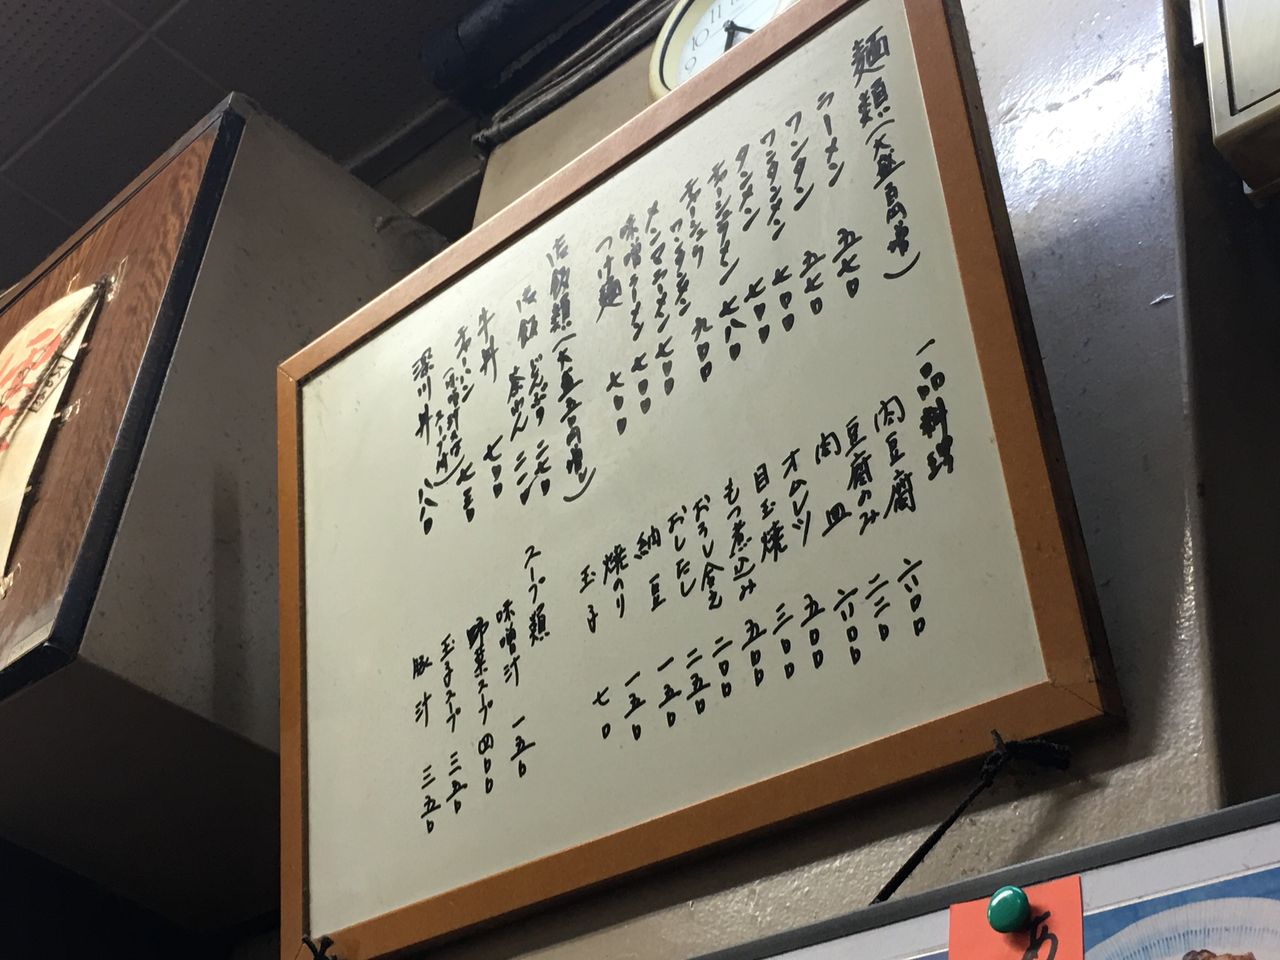 麺類(大盛百円増)
ラーメン 五七〇
ワンタン 五七〇
ワンタンメン 七〇〇
タンメン 七〇〇
チャーシューメン 七八〇
チャーシューワンタンメン 九〇〇
メンマラーメン 七〇〇
味噌ラーメン 七〇〇
つけ麺 七〇〇
御飯類(大盛五〇円増)
御飯 どんぶり 二七〇
茶わん 二二〇
牛丼 七〇〇
チャーハン(スープ付) 七五〇
深川丼 八八〇
一品料理
肉豆腐 六〇〇
豆腐のみ 二三〇
肉皿 六〇〇
オムレツ 五〇〇
目玉焼 三〇〇
もつ煮込み 五五〇
おろし合え 二〇〇
おしたし 二五〇
納豆 一五〇
焼のり 一五〇
玉子 七〇
スープ類
味噌汁 一五〇
野菜スープ 四〇〇
玉子スープ 三五〇
豚汁 三五〇
10
11
9